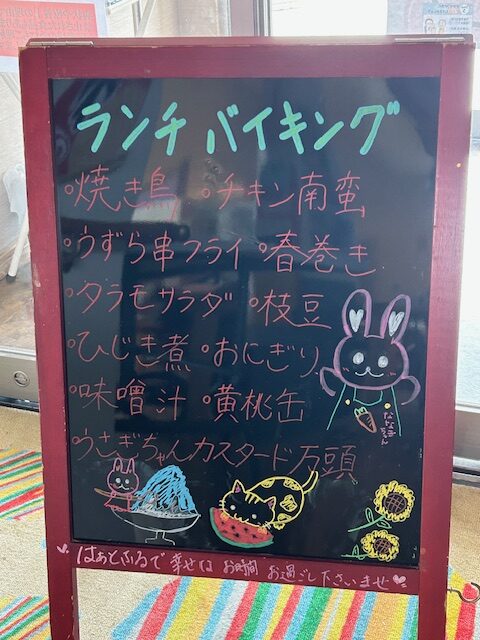 ランチ バイキング
・焼き鳥 ・チキン南蛮
・うずら串フライ ・春巻き
・タラモサラダ ・枝豆
・ひじき煮 ・おにぎり
・味噌汁 ・黄桃缶
・うさぎちゃんカスタード万頭
はぁとふるで 幸せな お時間 お過ごし下さいませ